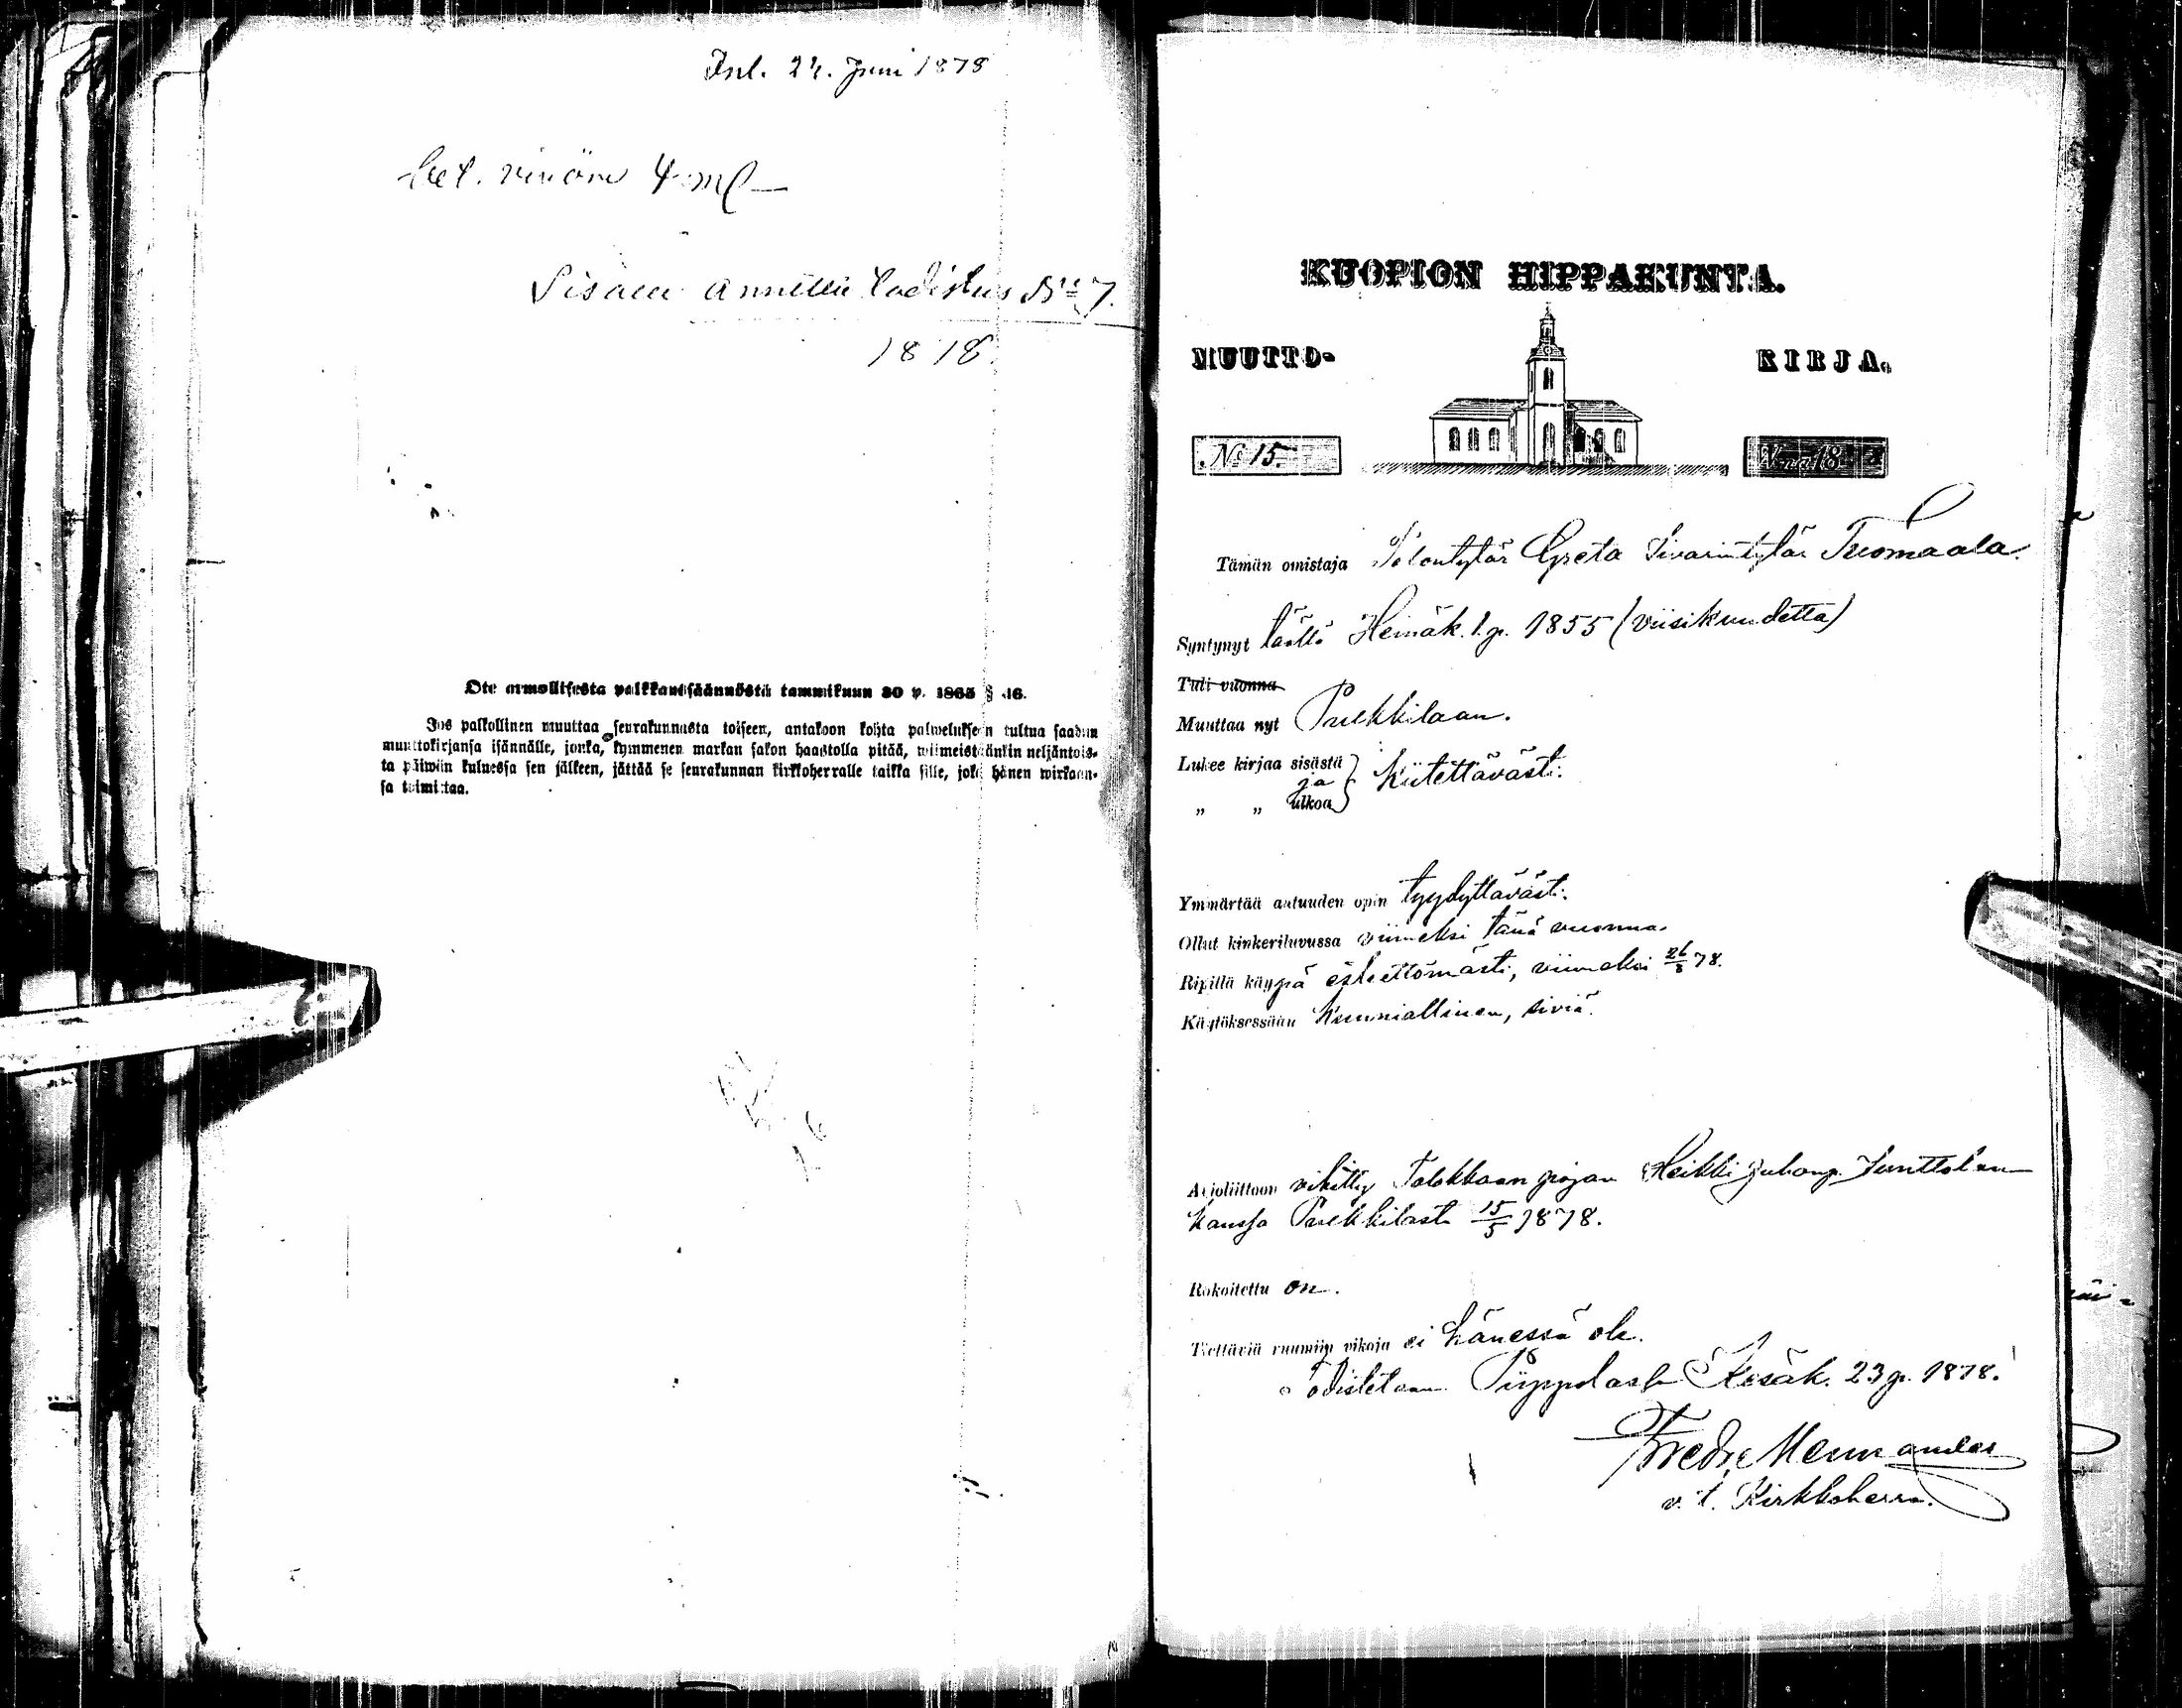 Inl. 24. Juni 1878
Sisään annettu todistus No 7.
1878
Ote armollisesta palkkaussäännöstä tammikuun 30 p. 1865 § 46.
Jos palkollinen muuttaa seurakunnasta toiseen, antakoon kohta palwelukseen tultua saadun
muuttokirjansa isännälle, jonka, kymmenen markan sakon haastolla pitää, wiimeistäänkin neljäntois-
ta päiwän kuluessa sen jälkeen, jättää se seurakunnan kirkkoherralle taikka sille, joka hänen wirkaan-
sa toimittaa.
KUOPION HIPPAKUNTA.
MUUTTO- KIRJA.
No 15. V:na 18
Tämän omistaja Talontytär Greta Iivarintytär Tuomaala.
Syntynyt täällä Heinäk. 1 p. 1855 (viisikuudetta)
Tuli vuonna
Muuttaa nyt Pulkkilaan.
Lukee kirjaa sisästä
ja kiitettävästi.
„ „ ulkoa
Ymmärtää autuuden opin tyydyttävästi.
Ollut kinkeriluvussa viimeksi tänä vuonna.
Ripillä käypä esteettömästi, viimeksi 26/3 78.
Käytöksessään kunniallinen, siviä.
Avioliittoon vihitty Talokkaan pojan Heikki Juhonp. Junttolan
kanssa Pulkkilasta 15/5 1878.
Rokoitettu on.
Tiettäviä ruumiin vikoja ei hänessä ole.
Todistetaan Piippolassa Kesäk. 23 p. 1878.
Fredr. Mennander
v. t. Kirkkoherra.